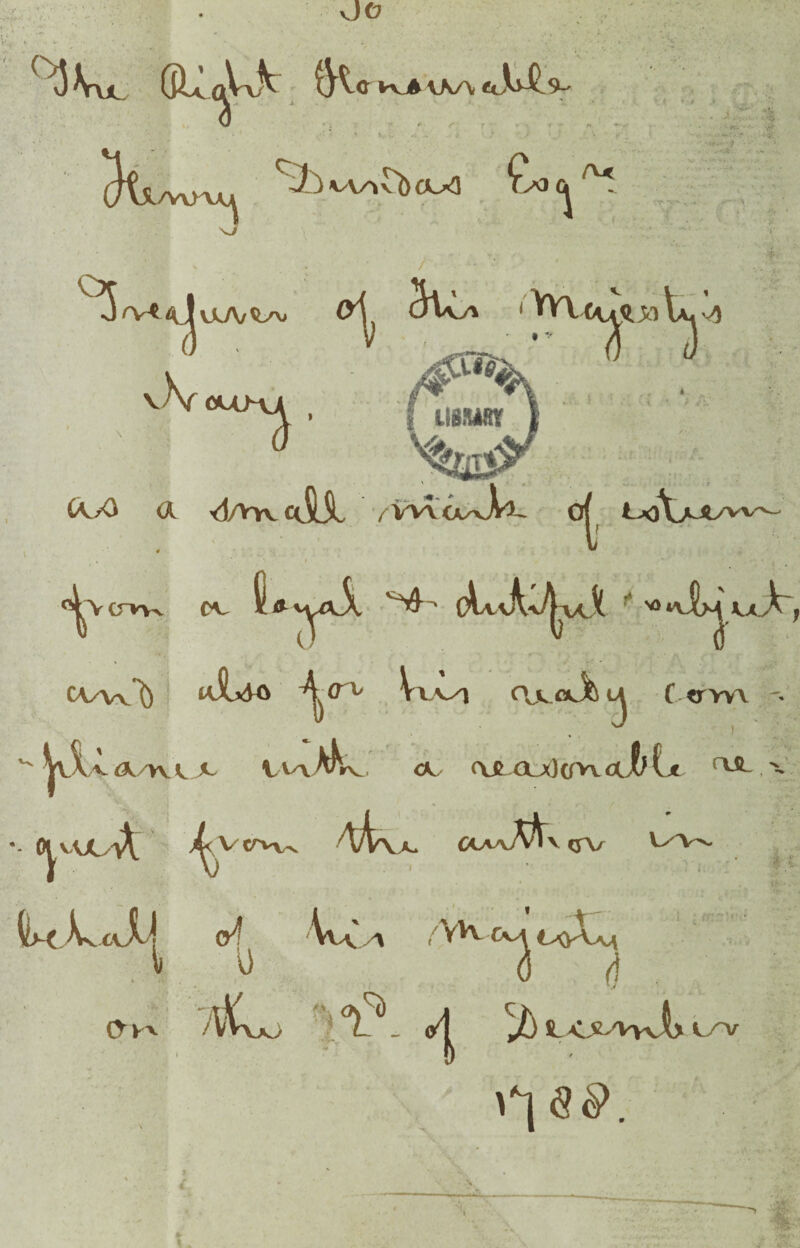 To
The Right Honourable
Henry Dundas Esqr.
Treasurer of His Majesty's
Navy,
WELLCOME
LIBRARY
as a small mark of esteem
from a loyal & dutiful subject,
and also for his ready com-
-pliance with a reasonable re-
-quest from the author in
behalf of his Majesty
on the 2d. of December
1788.